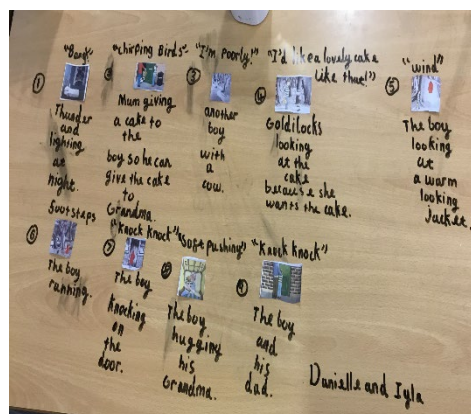 "Bang"
①
Thunder
and
lighting
at
night.
"chirping Birds"
②
Mum giving
a cake to
the
boy so he can
give the cake
to
Grandma.
"I'm Poorly!"
③
another
boy
with
a
cow.
"I'd like a lovely cake
like that!"
④
Goldilocks
looking
at the
cake
because she
wants the cake.
"wind"
⑤
The boy
looking
at
a warm
looking
Jacket.
footsteps
⑥
The boy
running.
"Knock knock"
⑦
The boy
knocking
on
the
door.
"Soft pushing"
⑧
The boy
hugging
his
Grandma.
"Knock knock"
The boy
and
his
dad.
Danielle and Iyla